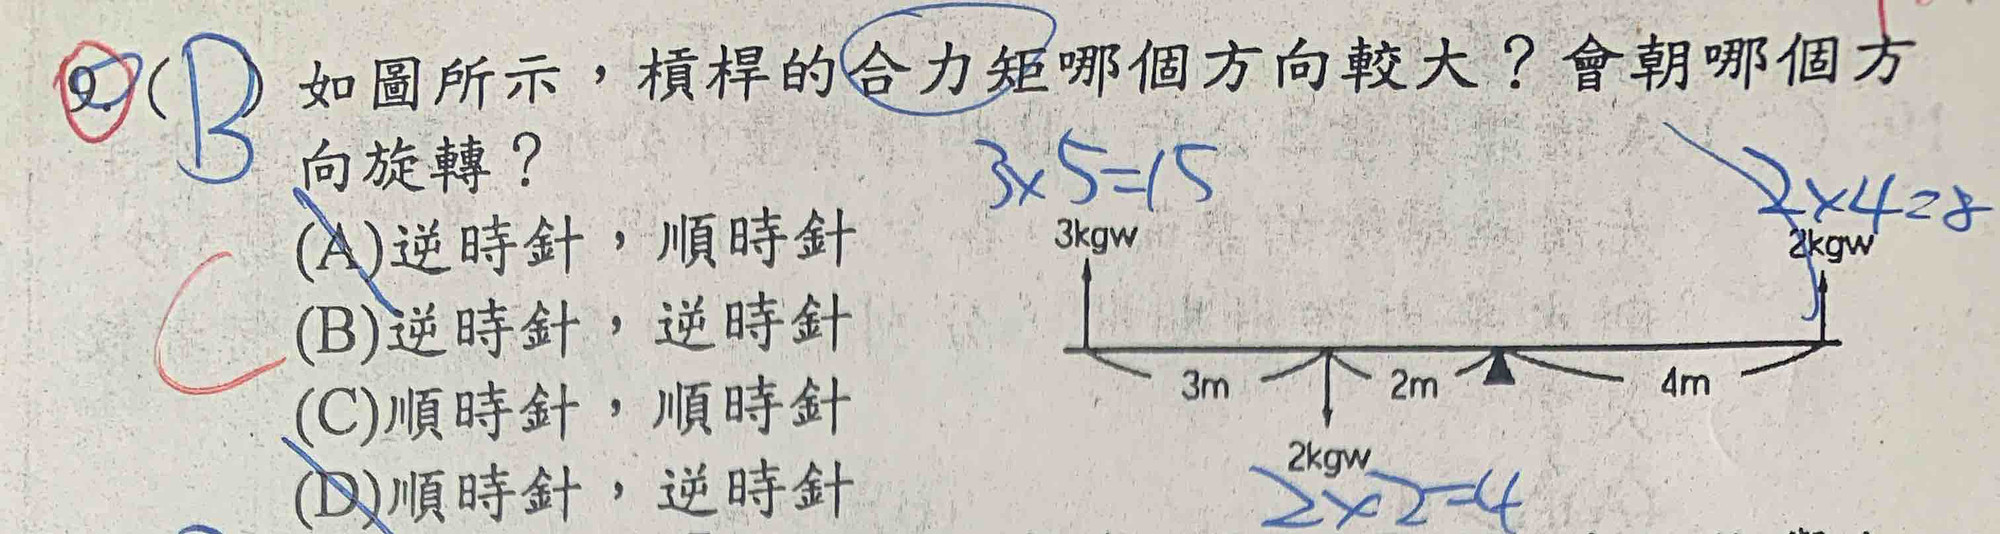 9.(B) 如圖所示，槓桿的合力矩哪個方向較大？會朝哪個方
向旋轉？
3×5=15
2×4=8
(A)逆時針，順時針
3kgw
2kgw
C
(B)逆時針，逆時針
3m
2m
4m
(C)順時針，順時針
2kgw
(D)順時針，逆時針
2×2=4